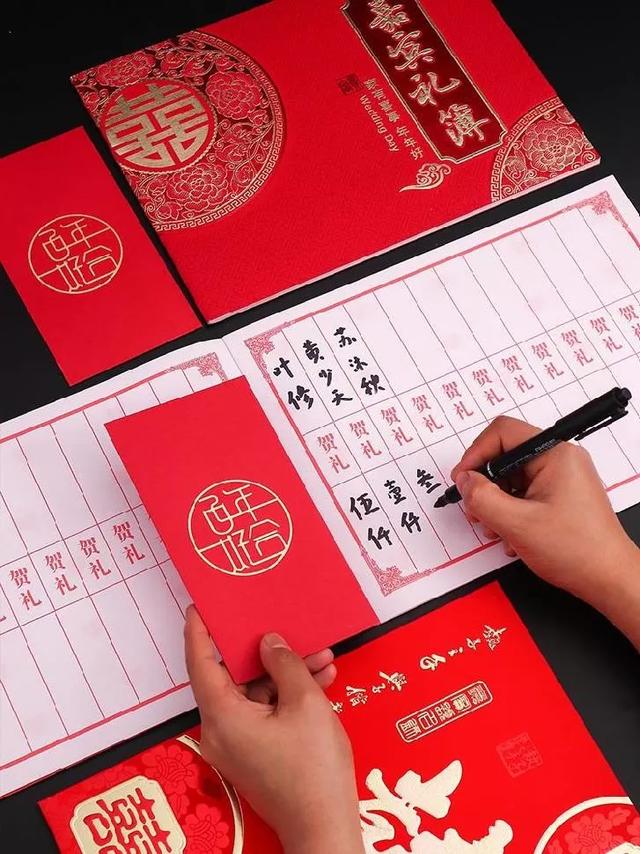 嘉宾礼簿
Wedding Day
年年好
囍
百年好合
苏沐秋
黄少天
叶修
贺礼 贺礼 贺礼 贺礼 贺礼 贺礼 贺礼 贺礼 贺礼 贺礼 贺礼
叁
壹仟
伍仟
贺礼 贺礼 贺礼 贺礼
百年好合
囍